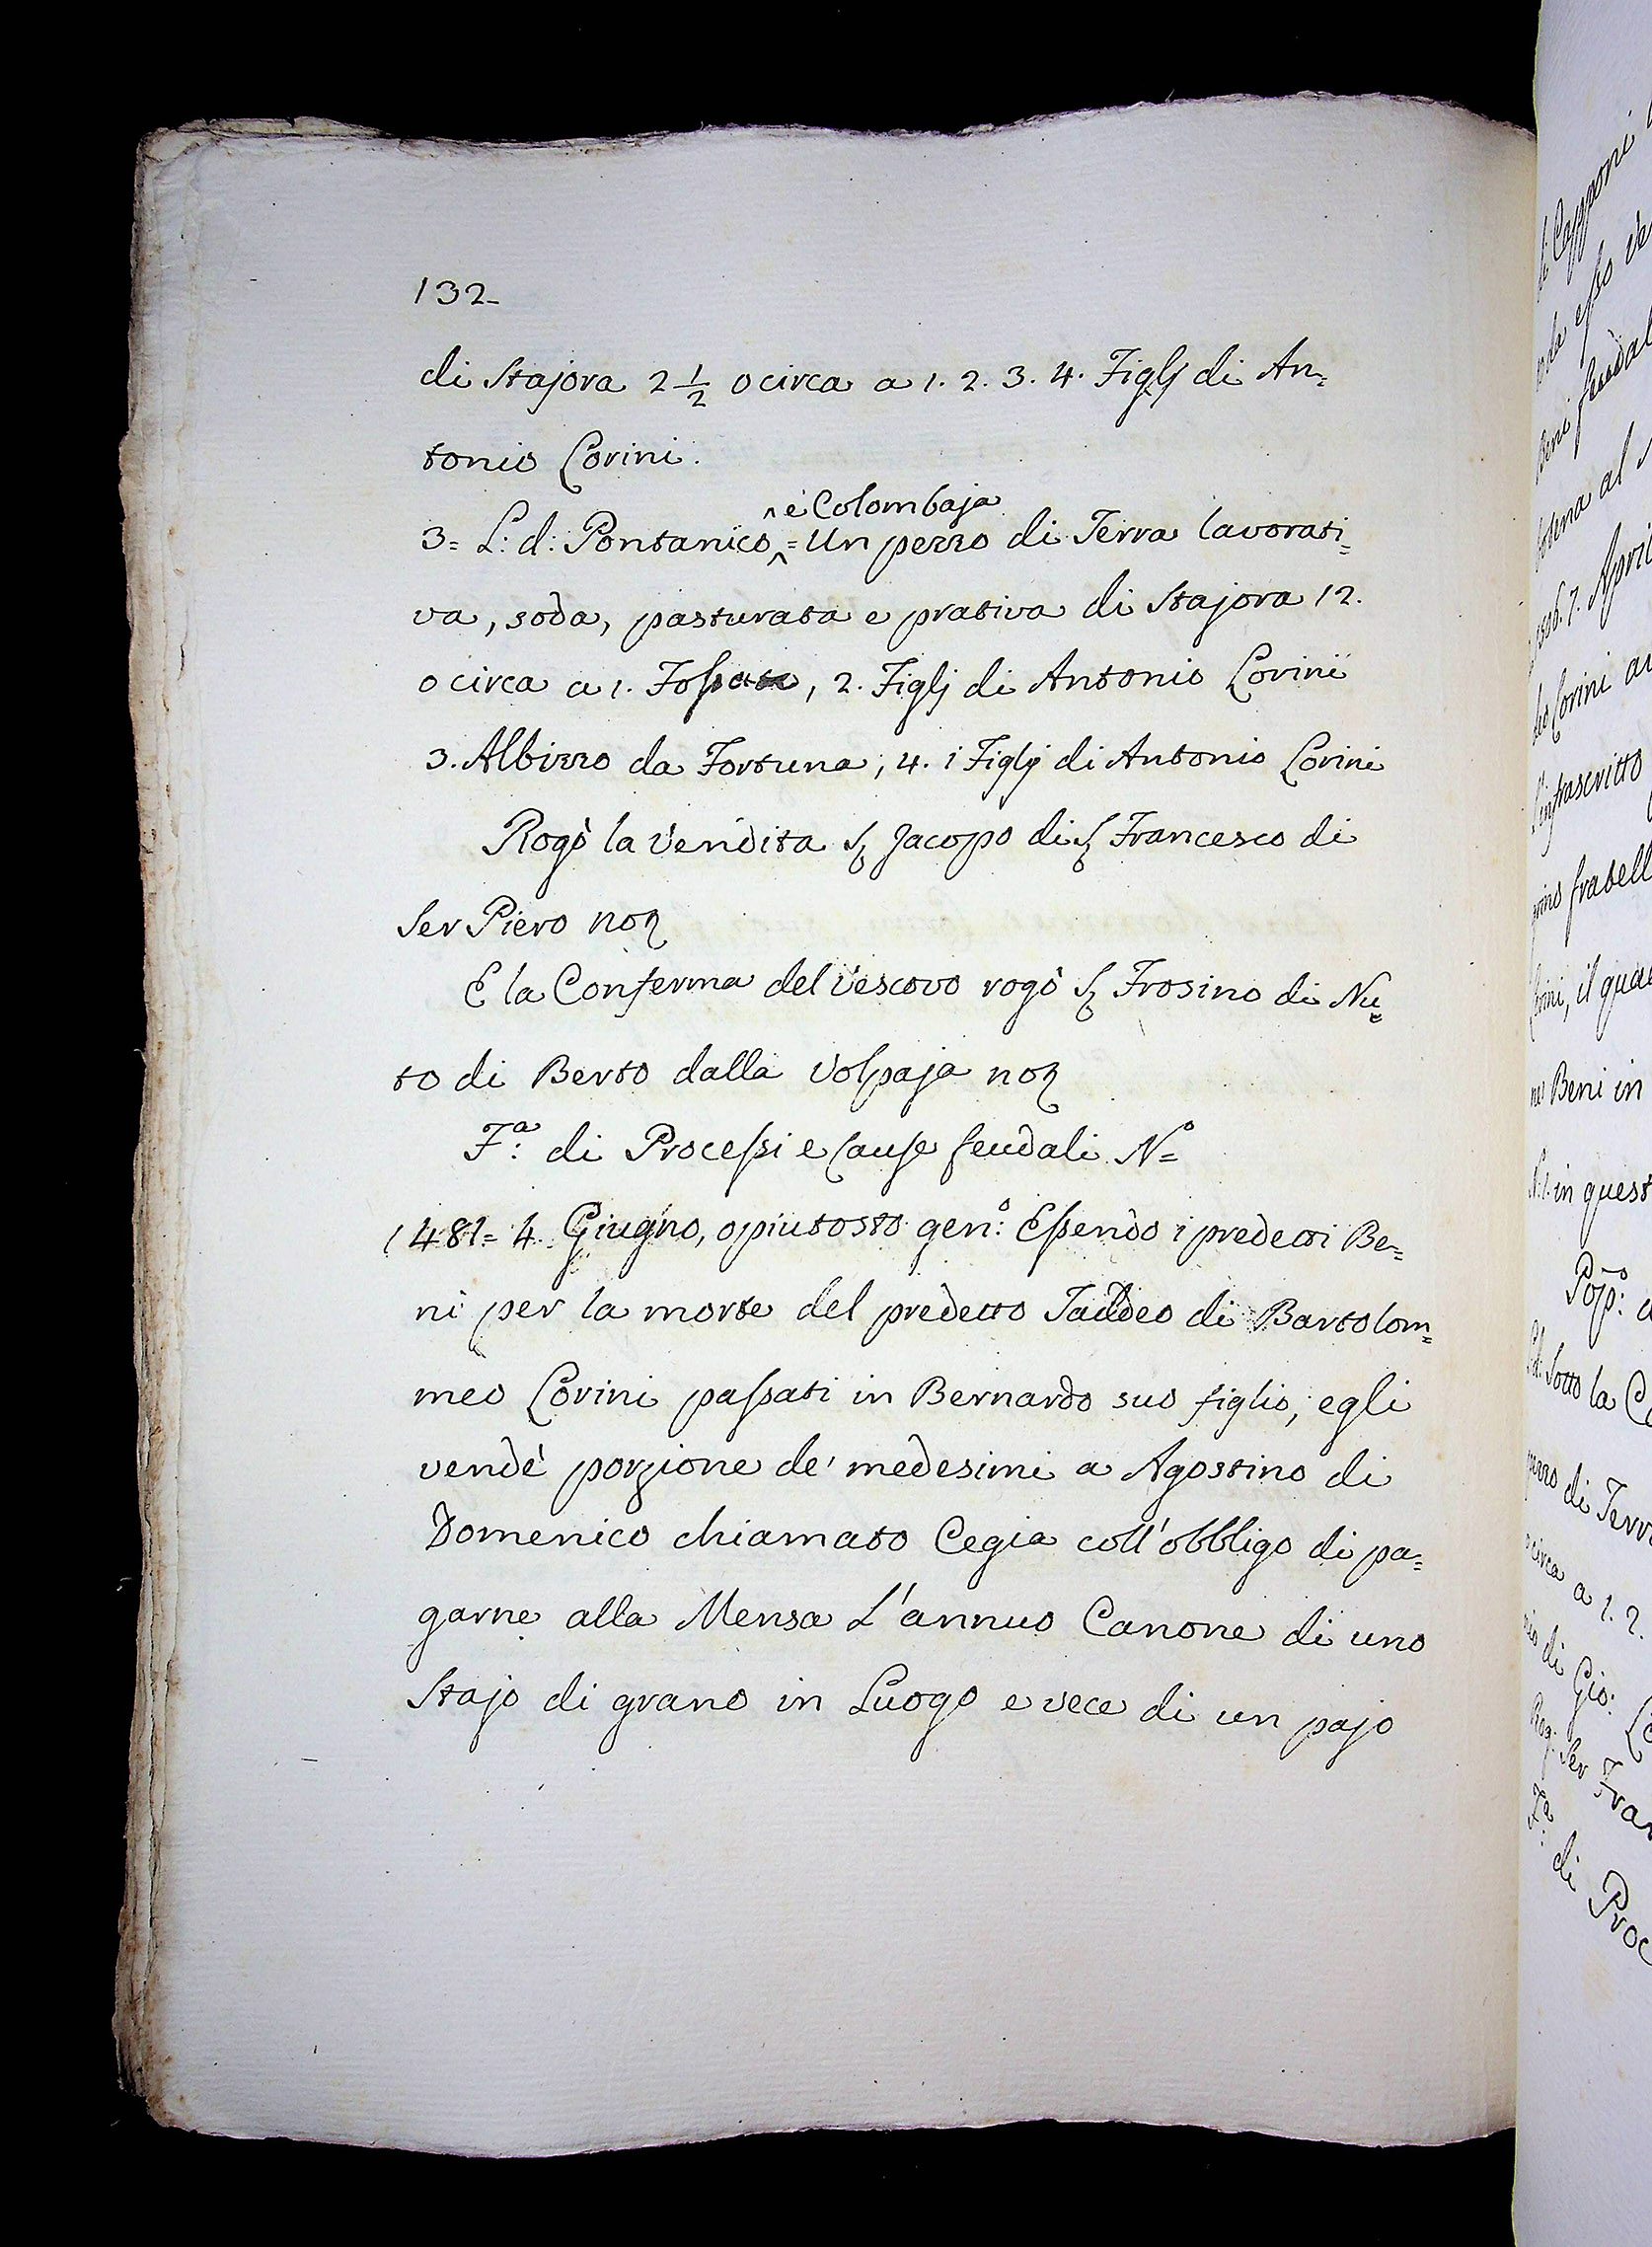 132
di Stajora 2 1/2 o circa a 1. 2. 3. 4. Figlj di An=
tonio Corini.
^ e Colombaja
3= L: d: Pontanico ^ = Un pezzo di Terra lavorati=
va, soda, pasturata e prativa di Stajora 12.
o circa a 1. Fossato, 2. Figlj di Antonio Corini
3. Albizzo da Fortuna, 4. i Figlj di Antonio Corini
Rogò la Vendita Sr Jacopo di Sr Francesco di
Ser Piero non
E la Conferma del Vescovo rogò Sr Frosino di Nu=
to di Berto dalla Volpaja non
Fa: di Processi e Cause feudali No=
1481= 4. Giugno, o piutosto geno: Essendo i predetti Be=
ni per la morte del predetto Taddeo di Bartolom=
meo Corini passati in Bernardo suo figlio, egli
vendè porzione de' medesimi a Agostino di
Domenico chiamato Cegia coll'obbligo di pa=
garne alla Mensa L'annuo Canone di uno
Stajo di grano in Luogo e vece di un pajo
di Capponi
esso
Beni feudal
al
1506. 7. April
Corini
l'infrascritto
fratell
il qua
Beni in
in quest
Pop:o
Sotto la
di Terra
circa a 1. 2.
di Gio:
Rog: Ser Fran
Fa: di Proc